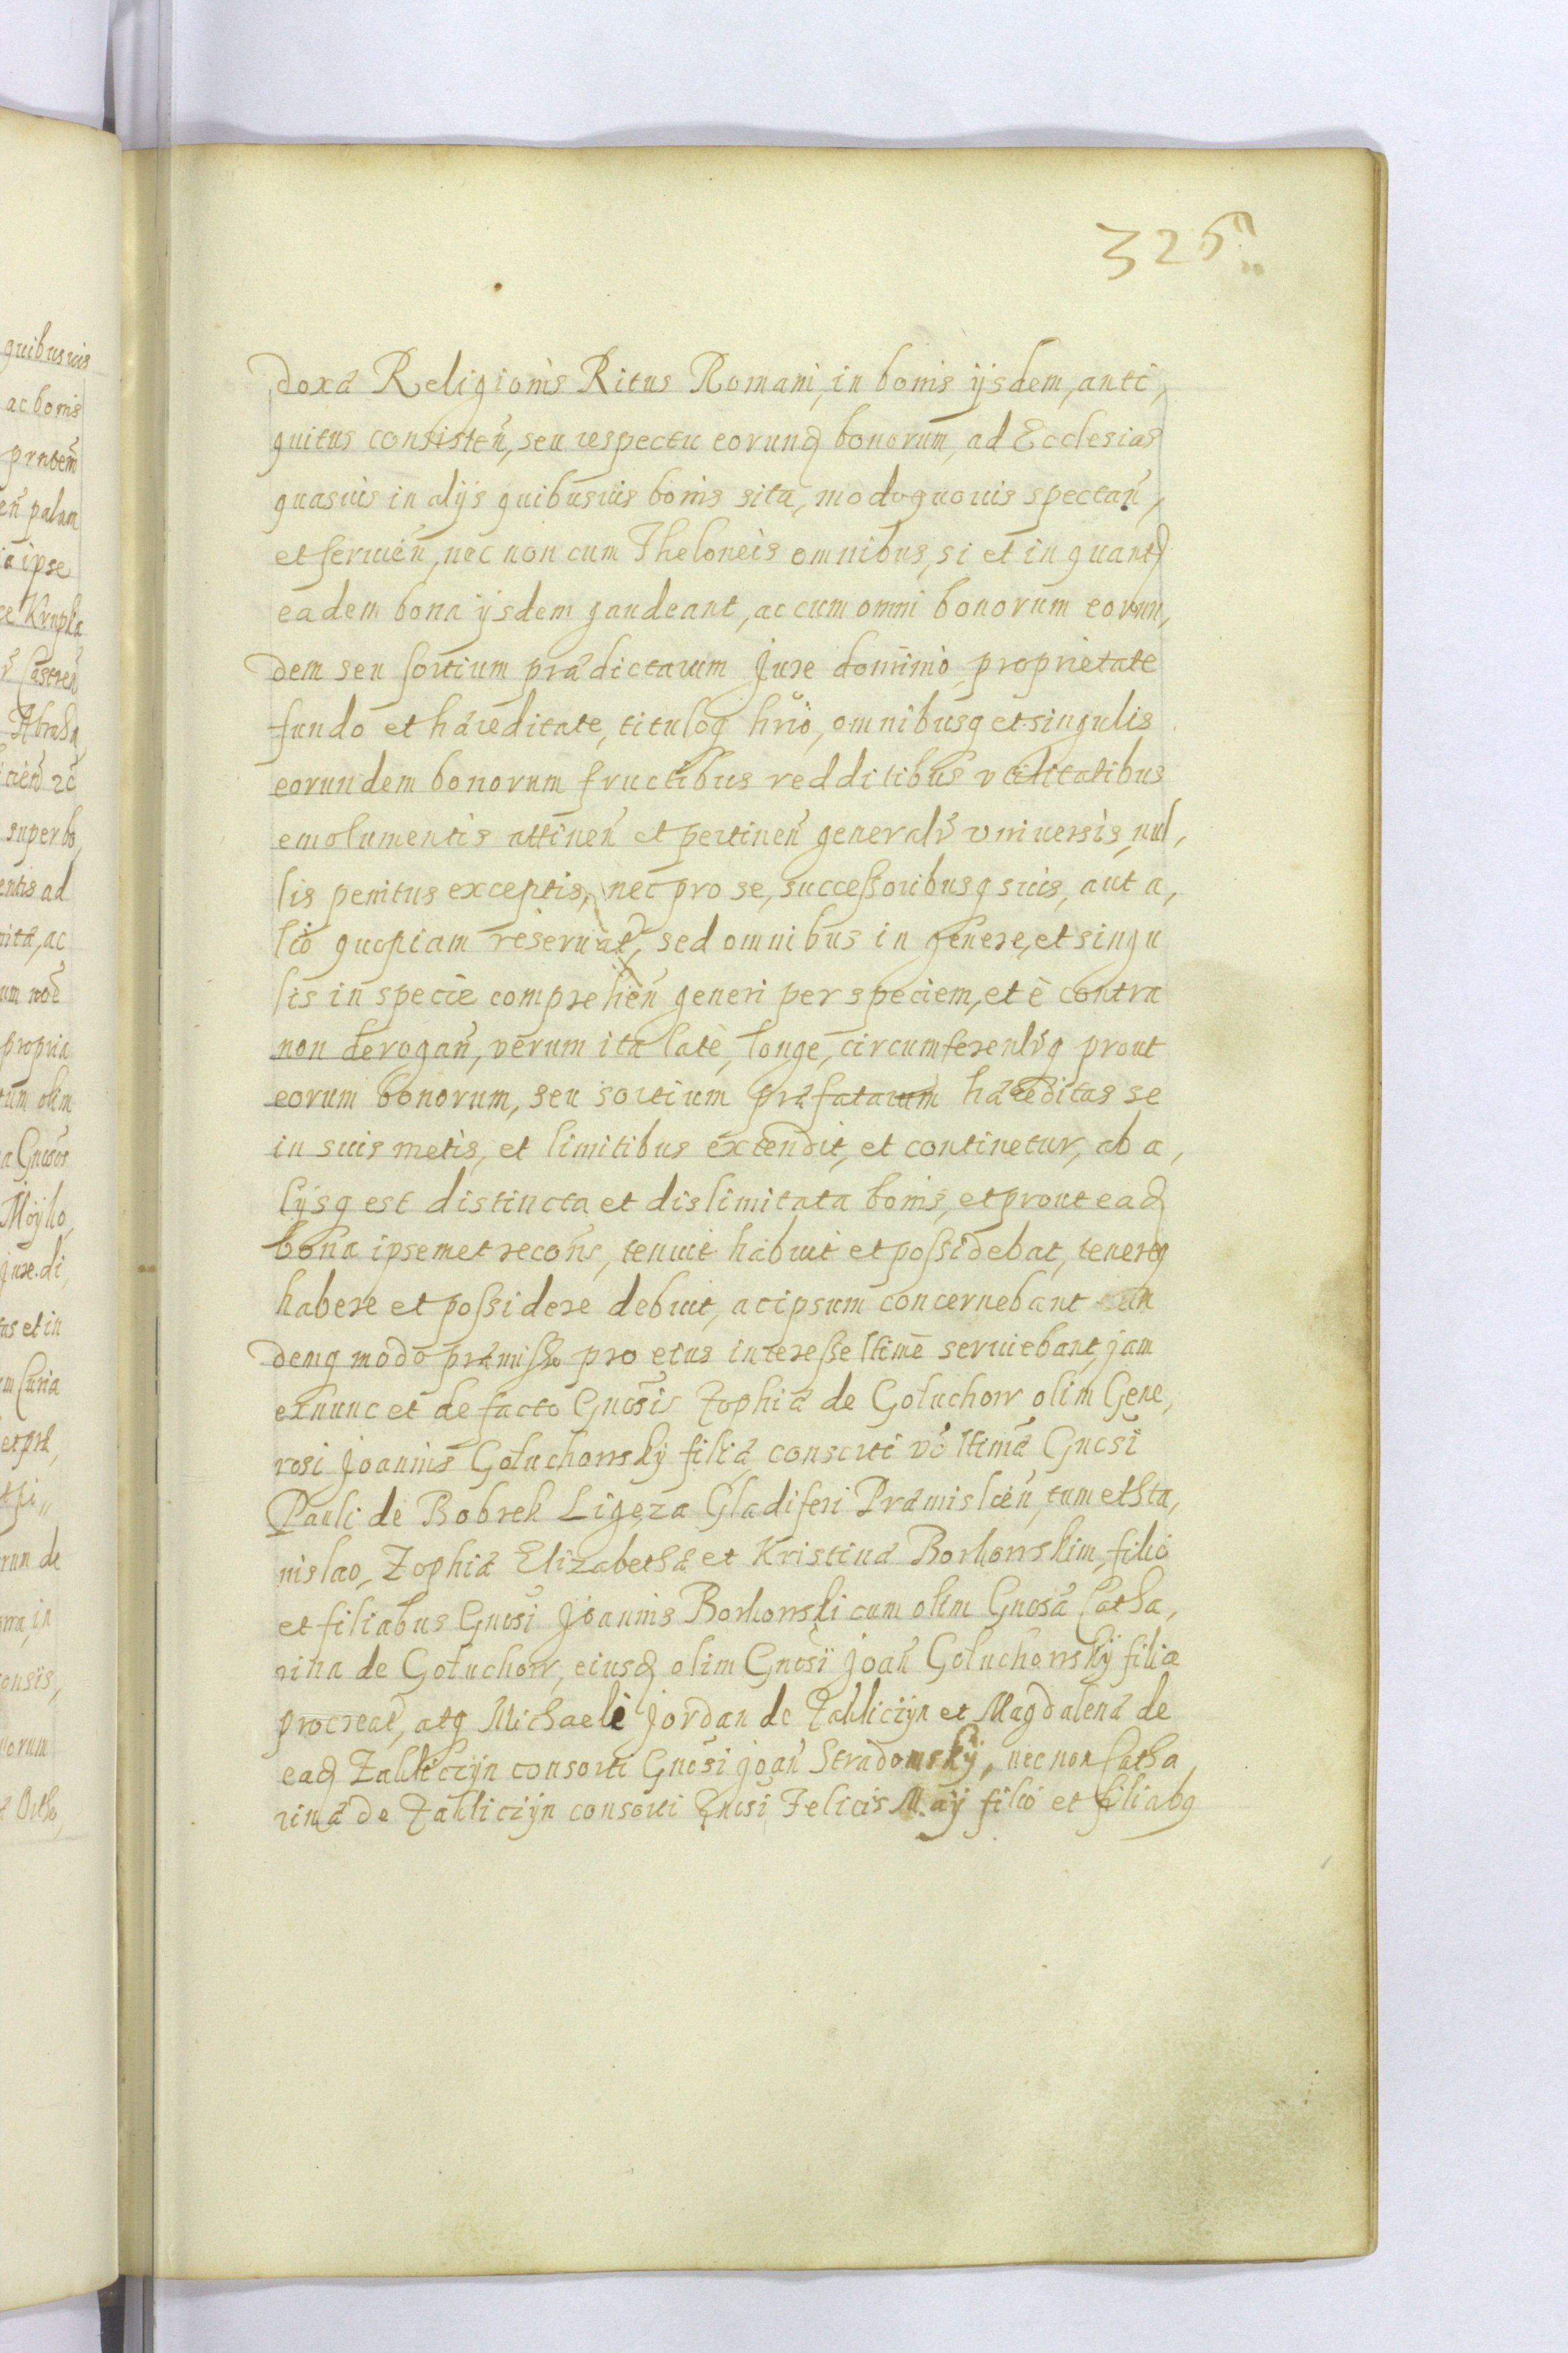 325
doxa Religionis Ritus Romani, in bonis ijsdem, anti,
quitus consisteñ, seu respectu eorunq bonorum, ad Ecclesias
quasuis in alijs quibusuis bonis sita, modoquouis spectañ,
et seruieñ, nec non cum Theloneis omnibus, si et in quant
eadem bona ijsdem gaudeant, ac cum omni bonorum eorun,
dem seu sortium prædictarum Jure dominio proprietate
fundo et hæreditate, tituloq hrio, omnibusq et singulis
eorundem bonorum fructibus redditibus vtilitatibus
emolumentis attineñ et pertineñ generalr vniuersis, nul,
lis penitus exceptis, nec pro se, successoribusq suis, aut a,
lio quopiam reseruat, sed omnibus in genere, et singu
lis in specie compreheñ generi per speciem, et è contra
non derogañ, verum ita latè, longe, circumferentrq prout
eorum bonorum, seu sortium præfatarum hæreditas se
in suis metis, et limitibus extendit, et continetur, ab a,
lijsq est distincta et dislimitata bonis, et prout eaq
bona ipsemet recons, tenuit habuit et possidebat, tenereq
habere et possidere debuit, ac ipsum concernebant
demq modo præmisso pro eius interesse ltime seruiebant, jam
exnunc et de facto Gnosis Zophiæ de Gołuchow olim Gene,
rosi Joannis Gołuchowskÿ filiæ consorti vo ltimæ Gnosi
Pauli de Bobrek Ligęza Gladiferi Præmislieñ, tum et Sta,
nislao, Zophiæ Elizabethæ et Kristinæ Borkowskim, filio
et filiabus Gnosi Joannis Borkowski cum olim Gnosa Catha,
rina de Gołuchow, eiusq olim Gnosi Joañ Gołuchowskÿ filiæ
procreat, atq Michaeli Jordan de Zakliczÿn et Magdalenæ de
eaq Zakliczÿn consorti Gnosi Joañ Stradomskÿ, nec non Catha,
rinæ de Zakliczÿn consorti Gnosi Felicis Maÿ filio et filiabq
quibusuis
ac bonis
palam
ipse
Krupka
super bo,
entis ad
ac
propria
olim
Moÿko,
Jure di,
et in
Curia
de
in